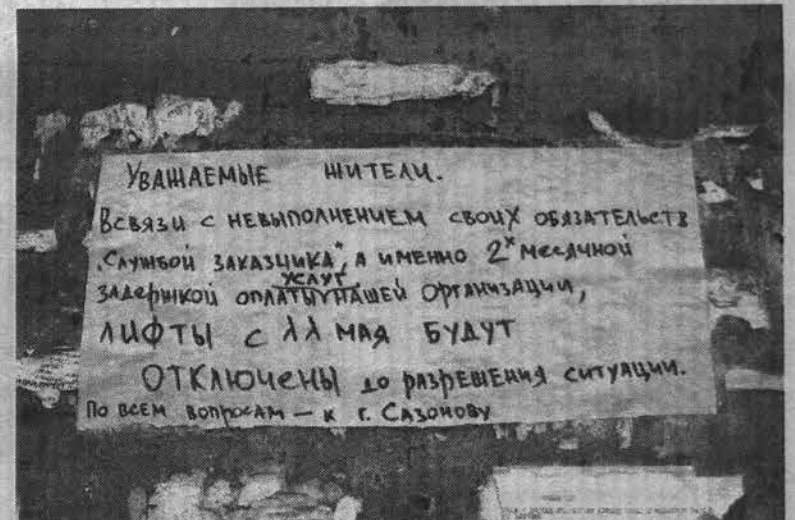 Уважаемые жители.
Всвязи с невыполнением своих обязательств
"Службой заказчика", а именно 2х месячной
услуг
задержкой оплаты нашей организации,
лифты с 11 мая будут
отключены до разрешения ситуации.
По всем вопросам — к г. Сазонову